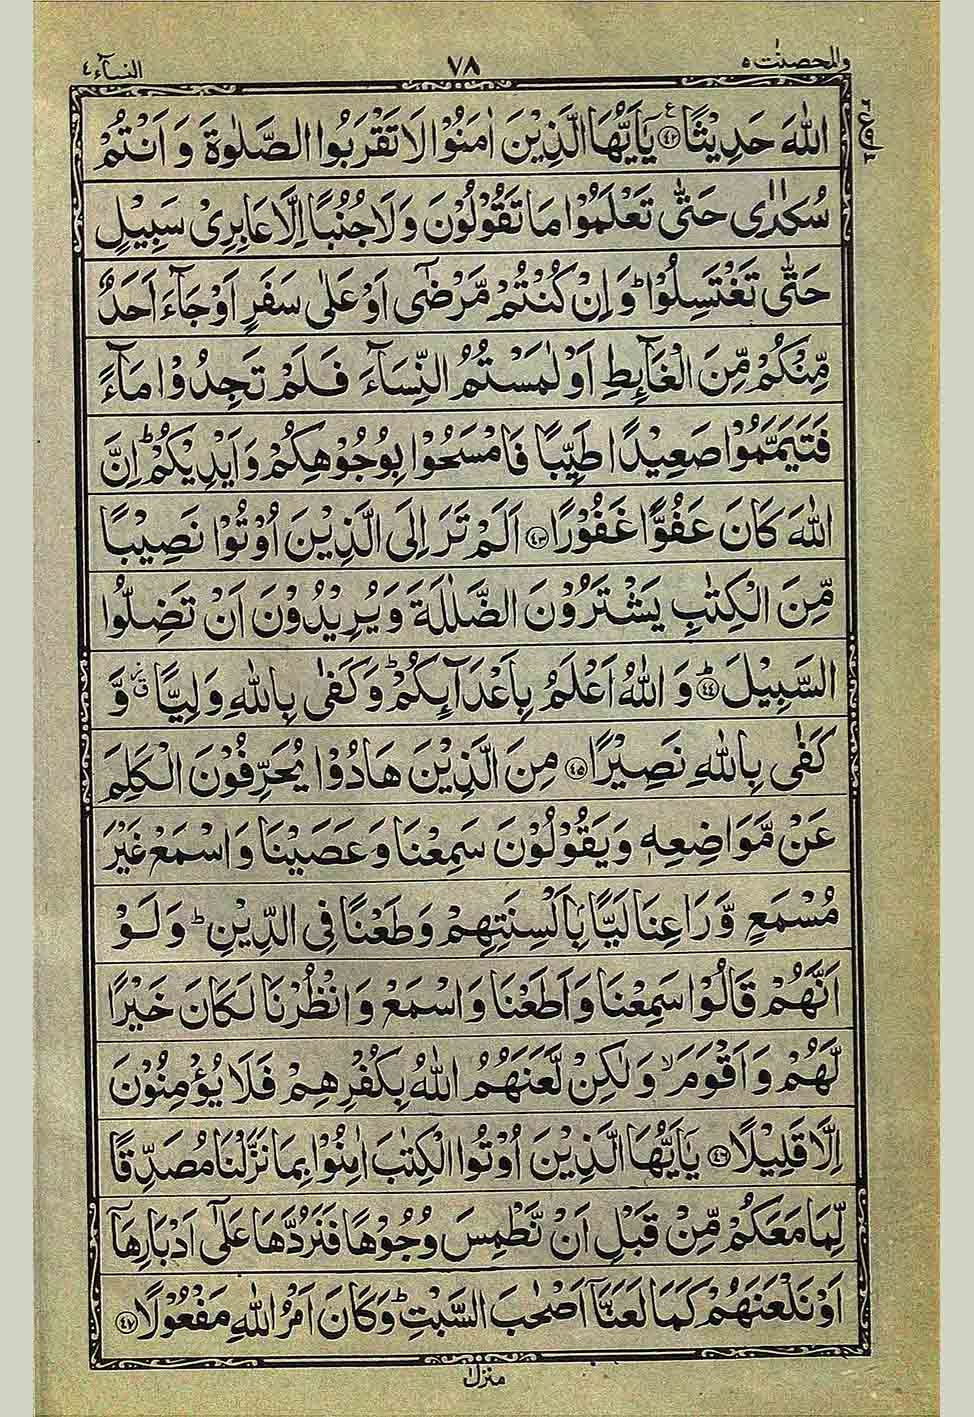 والمحصنٰت ٥ ٧٨ النسآء ٤
اللّٰهَ حَدِيْثًا ﴿٤٢﴾ يٰٓاَيُّهَا الَّذِيْنَ اٰمَنُوْا لَا تَقْرَبُوا الصَّلٰوةَ وَ اَنْتُمْ
سُكٰرٰى حَتّٰى تَعْلَمُوْا مَا تَقُوْلُوْنَ وَ لَا جُنُبًا اِلَّا عَابِرِيْ سَبِيْلٍ
حَتّٰى تَغْتَسِلُوْا ؕ وَ اِنْ كُنْتُمْ مَّرْضٰٓى اَوْ عَلٰى سَفَرٍ اَوْ جَآءَ اَحَدٌ
مِّنْكُمْ مِّنَ الْغَآىِٕطِ اَوْ لٰمَسْتُمُ النِّسَآءَ فَلَمْ تَجِدُوْا مَآءً
فَتَيَمَّمُوْا صَعِيْدًا طَيِّبًا فَامْسَحُوْا بِوُجُوْهِكُمْ وَ اَيْدِيْكُمْ ؕ اِنَّ
اللّٰهَ كَانَ عَفُوًّا غَفُوْرًا ﴿٤٣﴾ اَلَمْ تَرَ اِلَى الَّذِيْنَ اُوْتُوْا نَصِيْبًا
مِّنَ الْكِتٰبِ يَشْتَرُوْنَ الضَّلٰلَةَ وَ يُرِيْدُوْنَ اَنْ تَضِلُّوا
السَّبِيْلَ ؕ ﴿٤٤﴾ وَ اللّٰهُ اَعْلَمُ بِاَعْدَآىِٕكُمْ ؕ وَ كَفٰى بِاللّٰهِ وَلِيًّا وَّ
كَفٰى بِاللّٰهِ نَصِيْرًا ﴿٤٥﴾ مِنَ الَّذِيْنَ هَادُوْا يُحَرِّفُوْنَ الْكَلِمَ
عَنْ مَّوَاضِعِهٖ وَ يَقُوْلُوْنَ سَمِعْنَا وَ عَصَيْنَا وَ اسْمَعْ غَيْرَ
مُسْمَعٍ وَّ رَاعِنَا لَيًّۢا بِاَلْسِنَتِهِمْ وَ طَعْنًا فِى الدِّيْنِ ؕ وَ لَوْ
اَنَّهُمْ قَالُوْا سَمِعْنَا وَ اَطَعْنَا وَ اسْمَعْ وَ انْظُرْنَا لَكَانَ خَيْرًا
لَّهُمْ وَ اَقْوَمَ ۙ وَ لٰكِنْ لَّعَنَهُمُ اللّٰهُ بِكُفْرِهِمْ فَلَا يُؤْمِنُوْنَ
اِلَّا قَلِيْلًا ﴿٤٦﴾ يٰٓاَيُّهَا الَّذِيْنَ اُوْتُوا الْكِتٰبَ اٰمِنُوْا بِمَا نَزَّلْنَا مُصَدِّقًا
لِّمَا مَعَكُمْ مِّنْ قَبْلِ اَنْ نَّطْمِسَ وُجُوْهًا فَنَرُدَّهَا عَلٰٓى اَدْبَارِهَآ
اَوْ نَلْعَنَهُمْ كَمَا لَعَنَّآ اَصْحٰبَ السَّبْتِ ؕ وَ كَانَ اَمْرُ اللّٰهِ مَفْعُوْلًا ﴿٤٧﴾
منزل ١